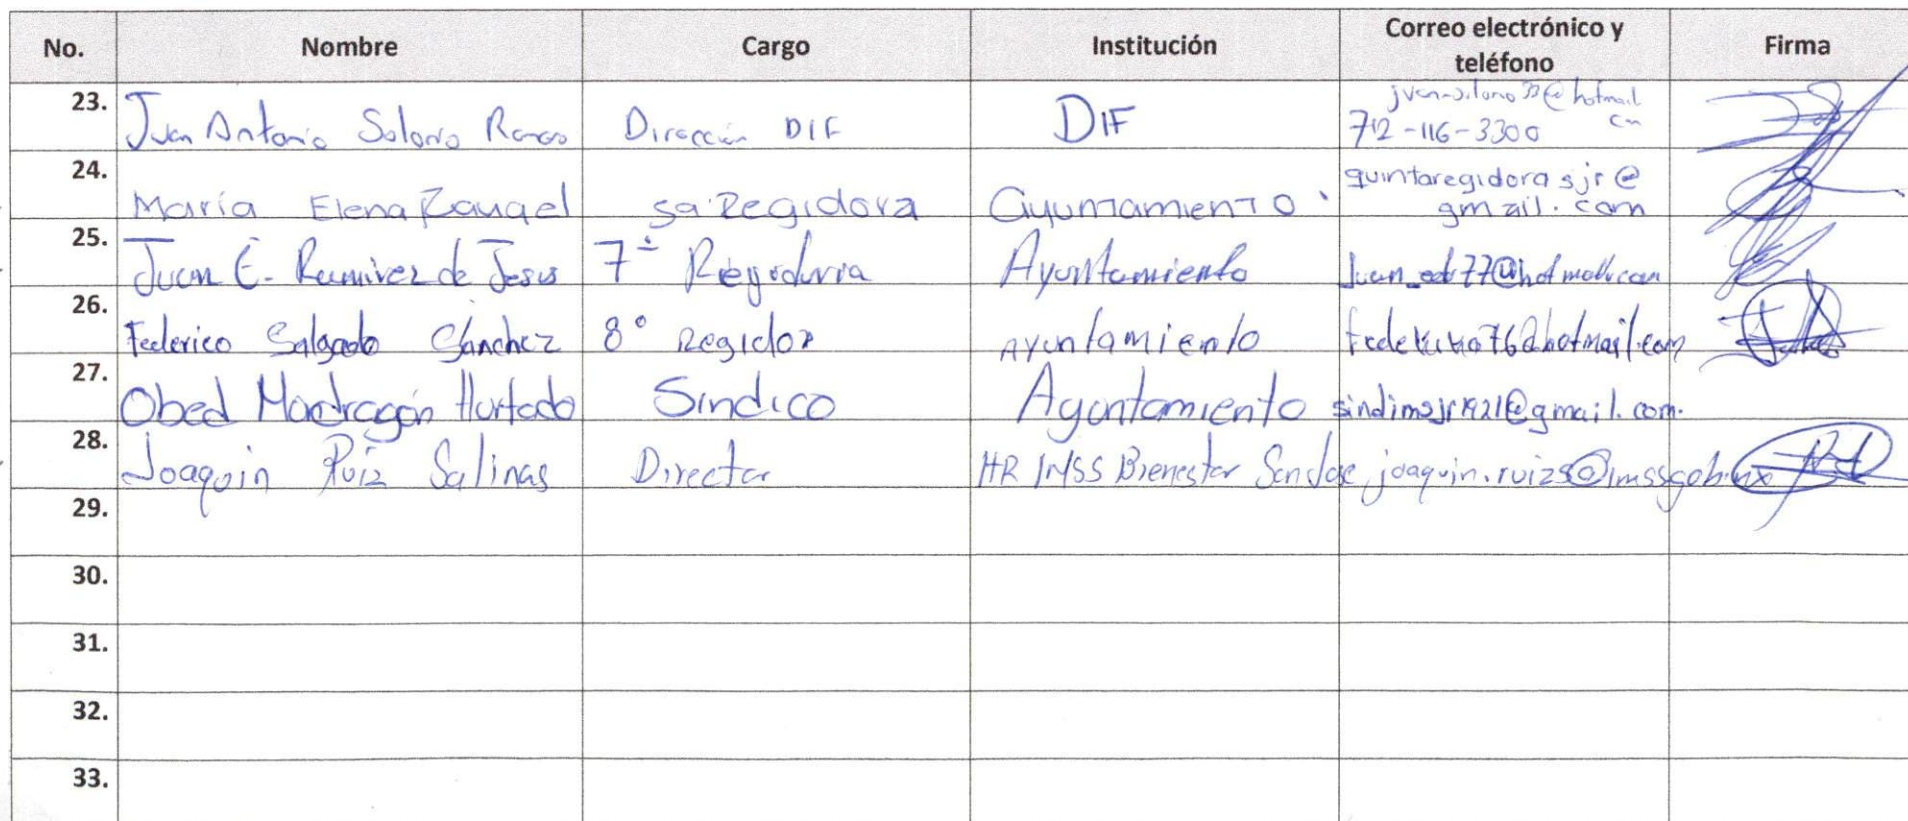 No. Nombre Cargo Institución Correo electrónico y teléfono Firma
23. Juan Antonio Solorio Ramos Dirección DIF DIF @hotmail
712-116-3300
24. María Elena Rangel 5a Regidora Ayuntamiento quintaregidorasjr@
gmail.com
25. Juan E. Ramirez de Jesus 7a Regiduria Ayuntamiento
26. Federico Salgado Sánchez 8° Regidor Ayuntamiento
27. Obed Mondragón Hurtado Sindico Ayuntamiento sindimsjr1921@gmail.com.
28. Joaquin Ruiz Salinas Director HR IMSS Bienestar San Jose joaquin.ruizs@imss.gob.mx
29.
30.
31.
32.
33.